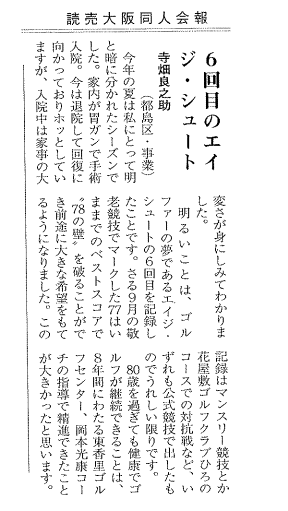 読売大阪同人会報
6回目のエイ
ジ・シュート
寺畑良之助
（都島区・事業）
今年の夏は私にとって明
と暗に分かれたシーズンで
した。家内が胃ガンで手術
入院。今は退院して回復に
向かっておりホッとしてい
ますが、入院中は家事の大
変さが身にしみてわかりま
した。
明るいことは、ゴル
ファーの夢であるエイジ・
シュートの6回目を記録し
たことです。さる9月の敬
老競技でマークした77はい
ままでのベストスコアで
“78の壁”を破ることがで
き前途に大きな希望をもて
るようになりました。この
記録はマンスリー競技とか
花屋敷ゴルフクラブひろの
コースでの対抗戦など、い
ずれも公式競技で出したも
のでうれしい限りです。
80歳を過ぎても健康でゴ
ルフが継続できることは、
8年間にわたる東香里ゴル
フセンター、岡本光康コー
チの指導で精進できたこと
が大きかったと思います。